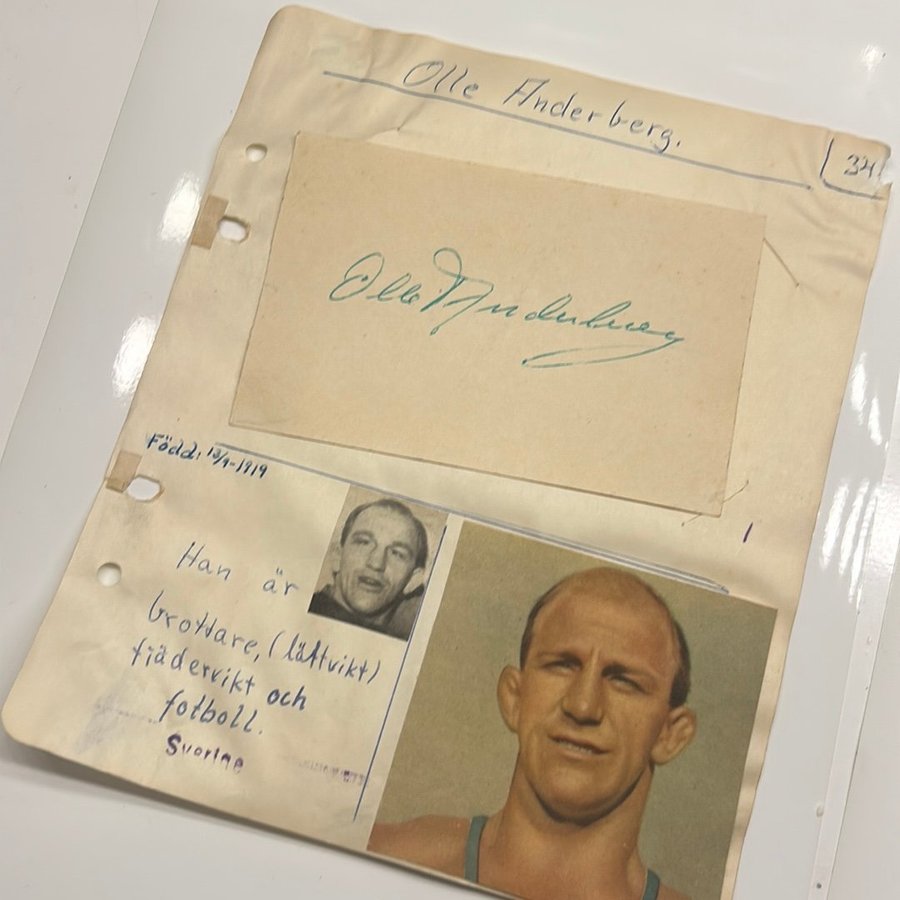 Olle Anderberg.
34
Olle Anderberg
Född: 13/9-1919
Han är
brottare, (lättvikt)
fjädervikt och
fotboll.
Sverige